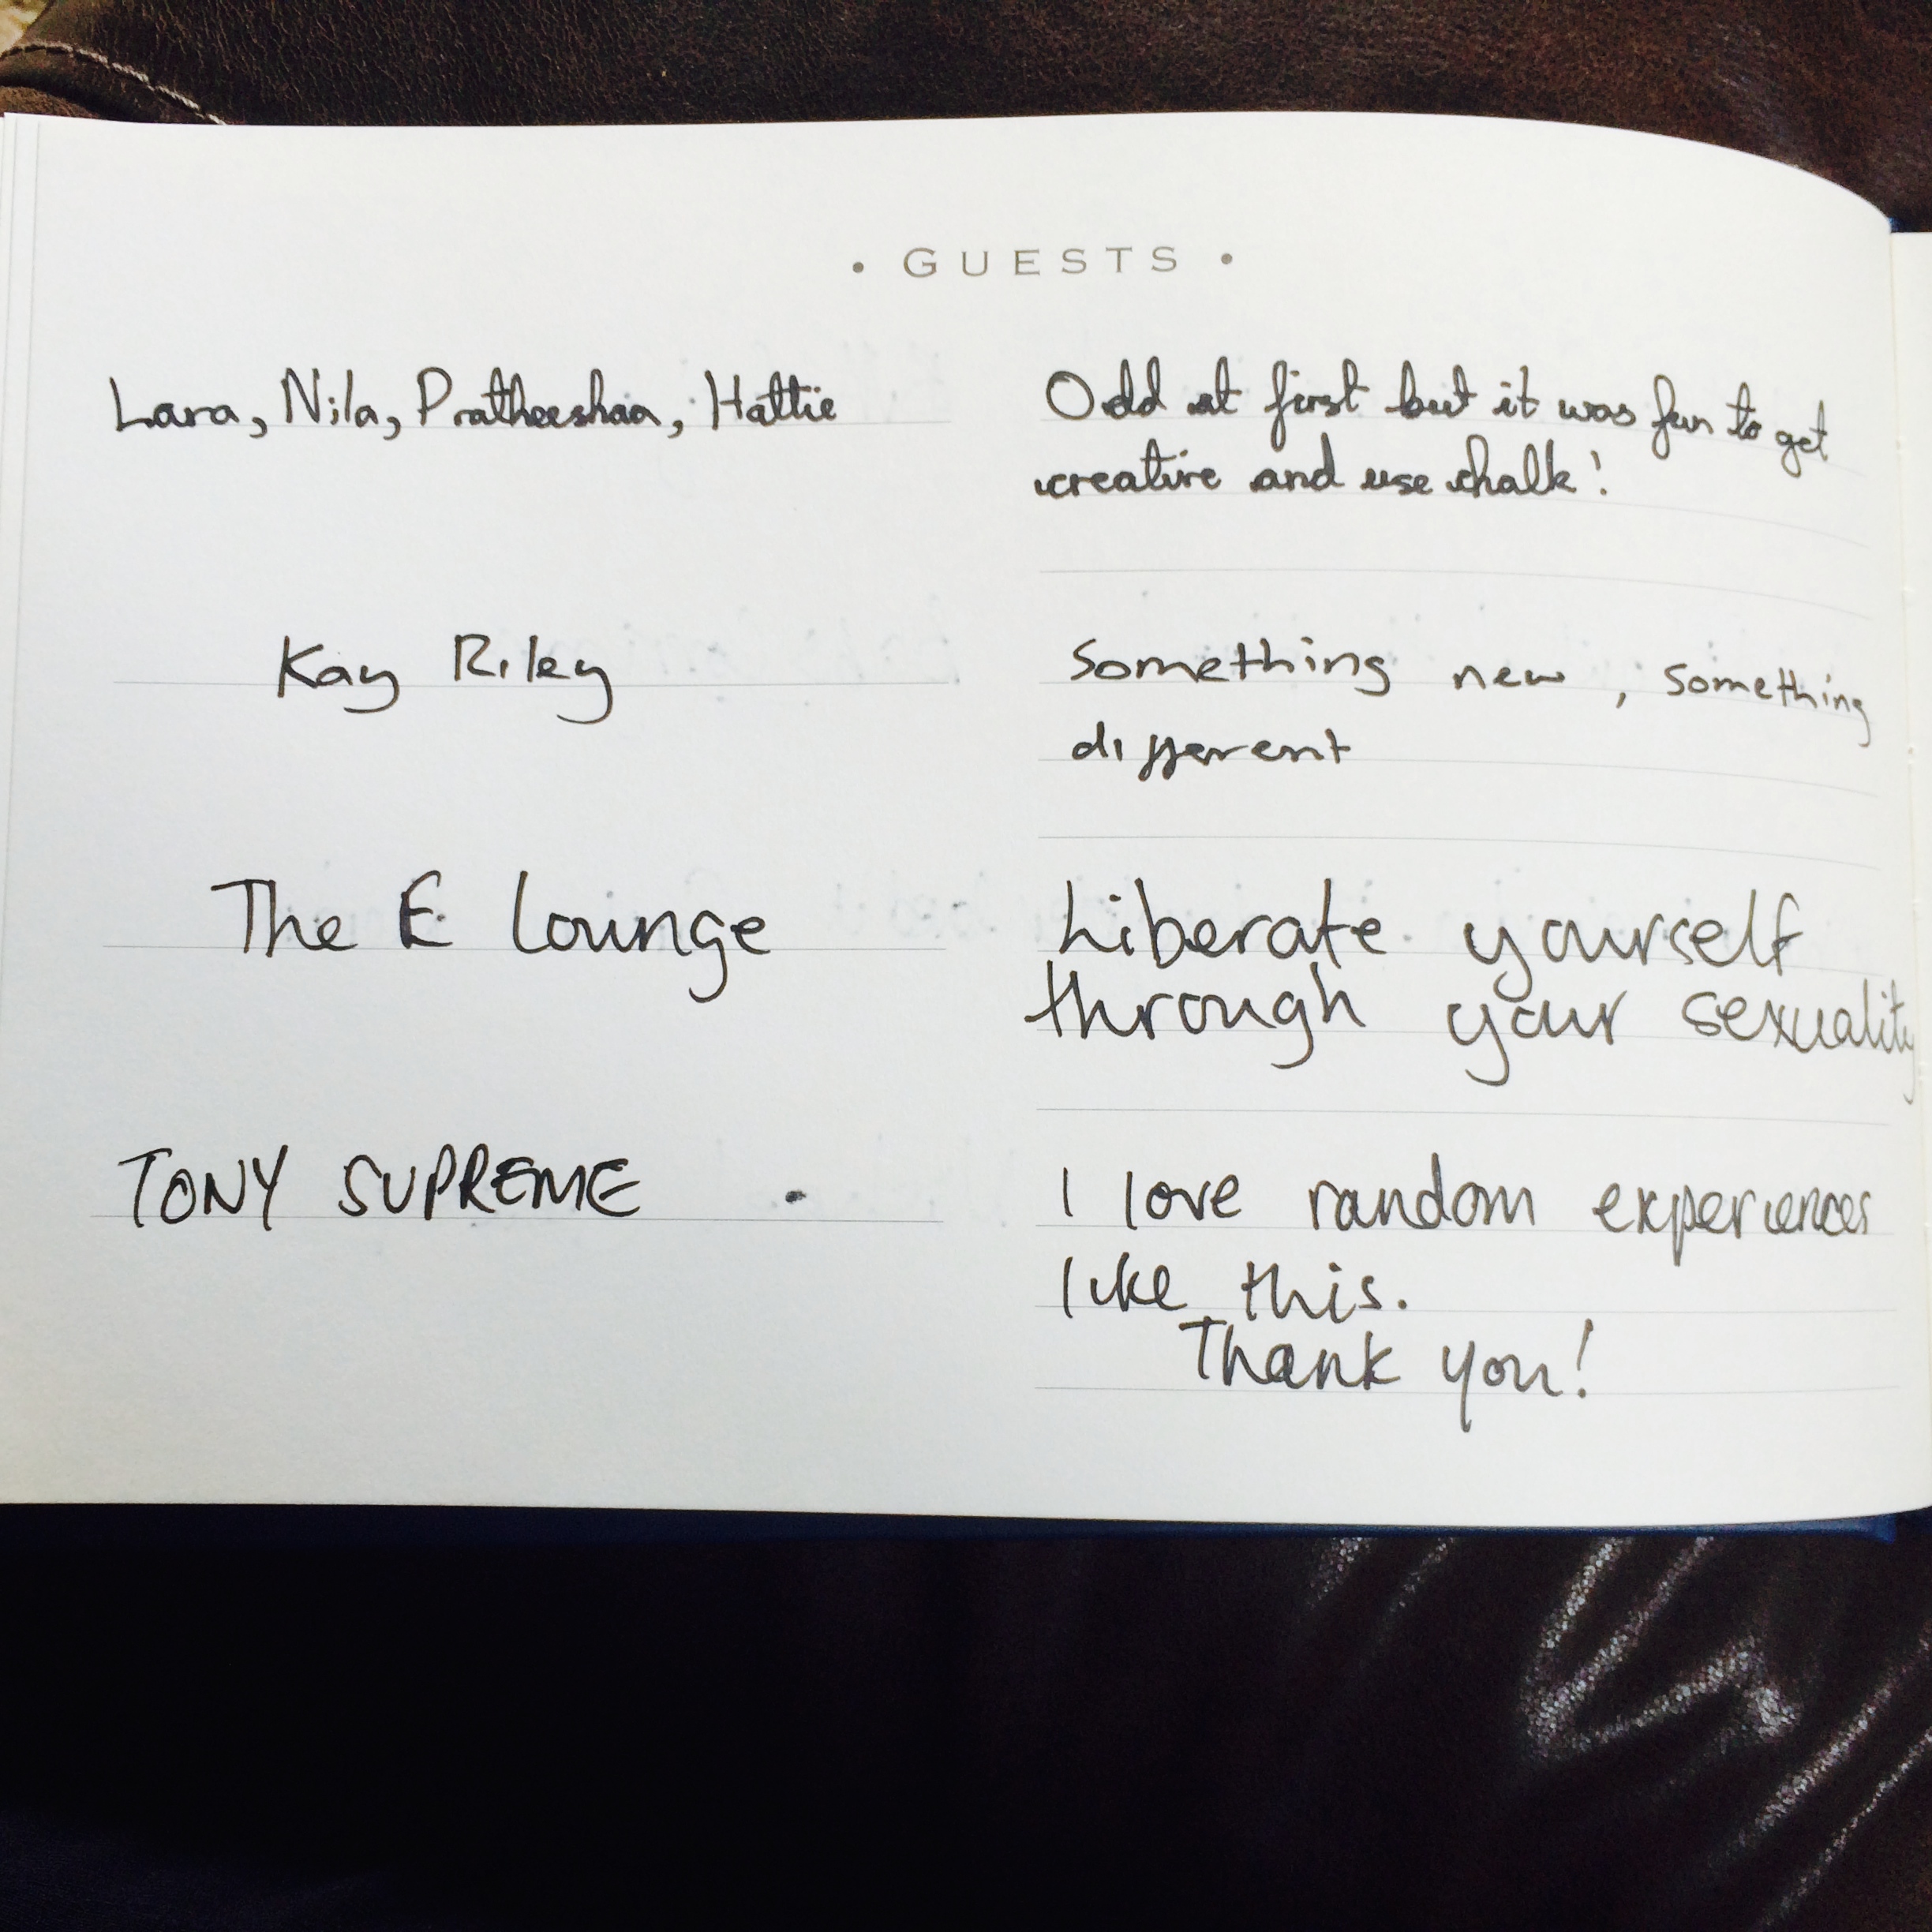 • GUESTS •
Lara, Nila, Pratheeshaa, Hattie
Odd at first but it was fun to get
creative and use chalk!
Kay Riley
Something new, something
different
The E Lounge
Liberate yourself
through your sexuality
TONY SUPREME
I love random experiences
like this.
Thank you!